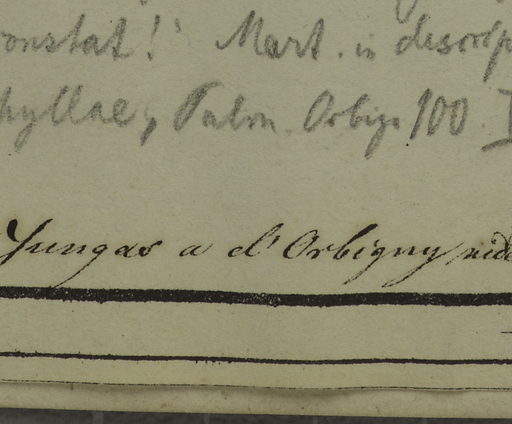 constat! Mart. in descrip
hyllae, Palm. Orbign. 100
Yungas a d'Orbigny